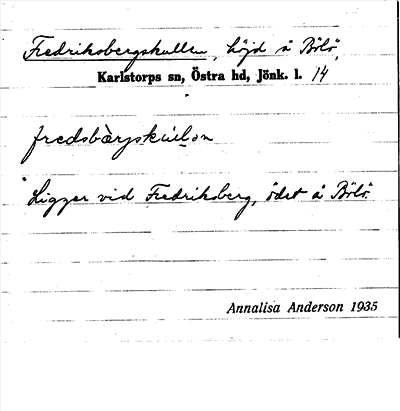 Fredriksbergskullen, höjd å Bölö,
Karlstorps sn, Östra hd, Jönk. l. 14
fredsbàrjskúlọn
Ligger vid Fredriksberg, ödet å Bölö.
Annalisa Anderson 1935